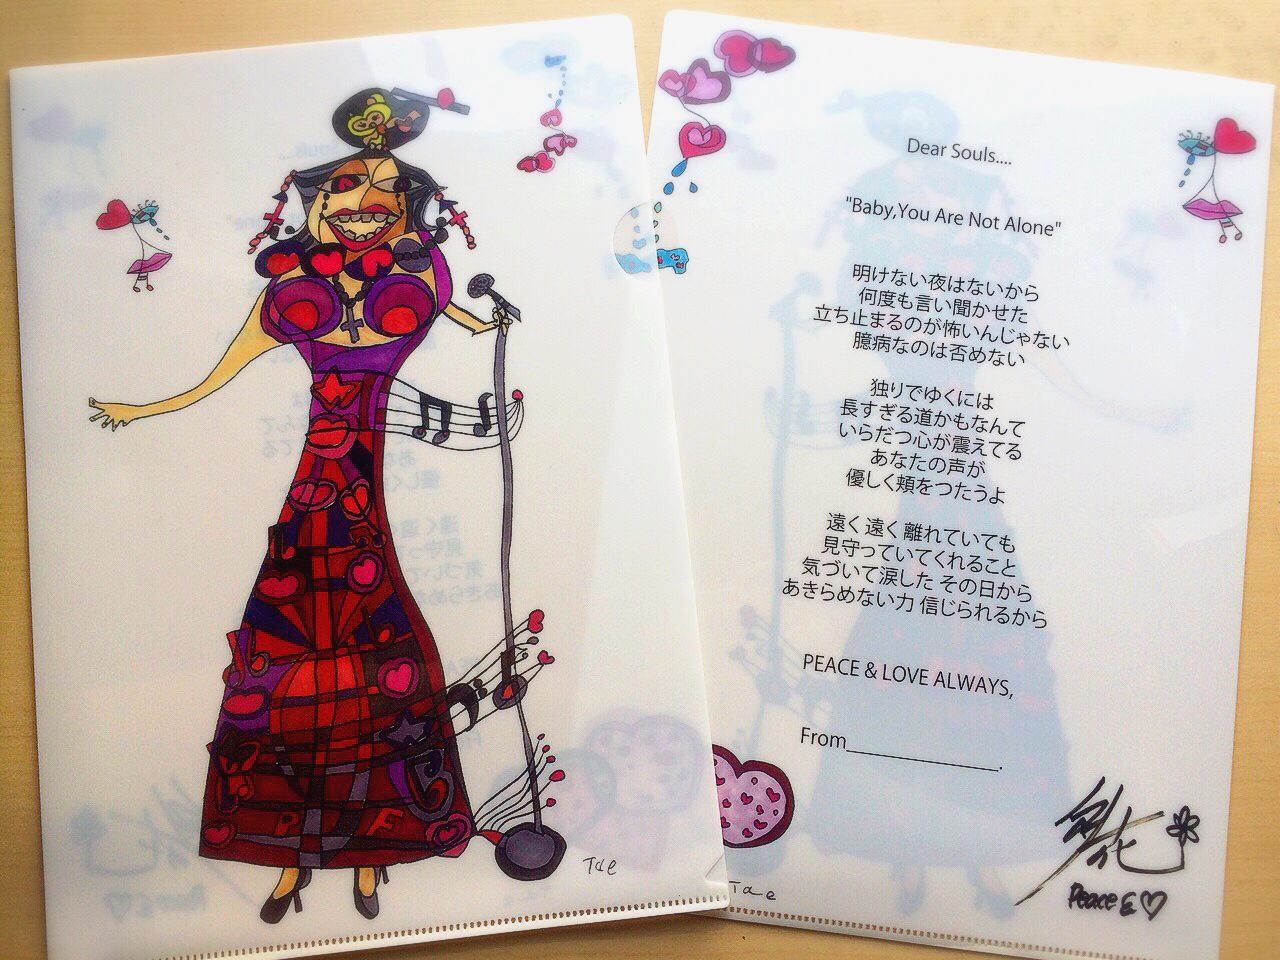 Tae
Dear Souls....
"Baby,You Are Not Alone"
明けない夜はないから
何度も言い聞かせた
立ち止まるのが怖いんじゃない
臆病なのは否めない
独りでゆくには
長すぎる道かもなんて
いらだつ心が震えてる
あなたの声が
優しく頬をつたうよ
遠く 遠く 離れていても
見守っていてくれること
気づいて涙した その日から
あきらめない力 信じられるから
PEACE & LOVE ALWAYS,
From______________.
Peace &
Tae